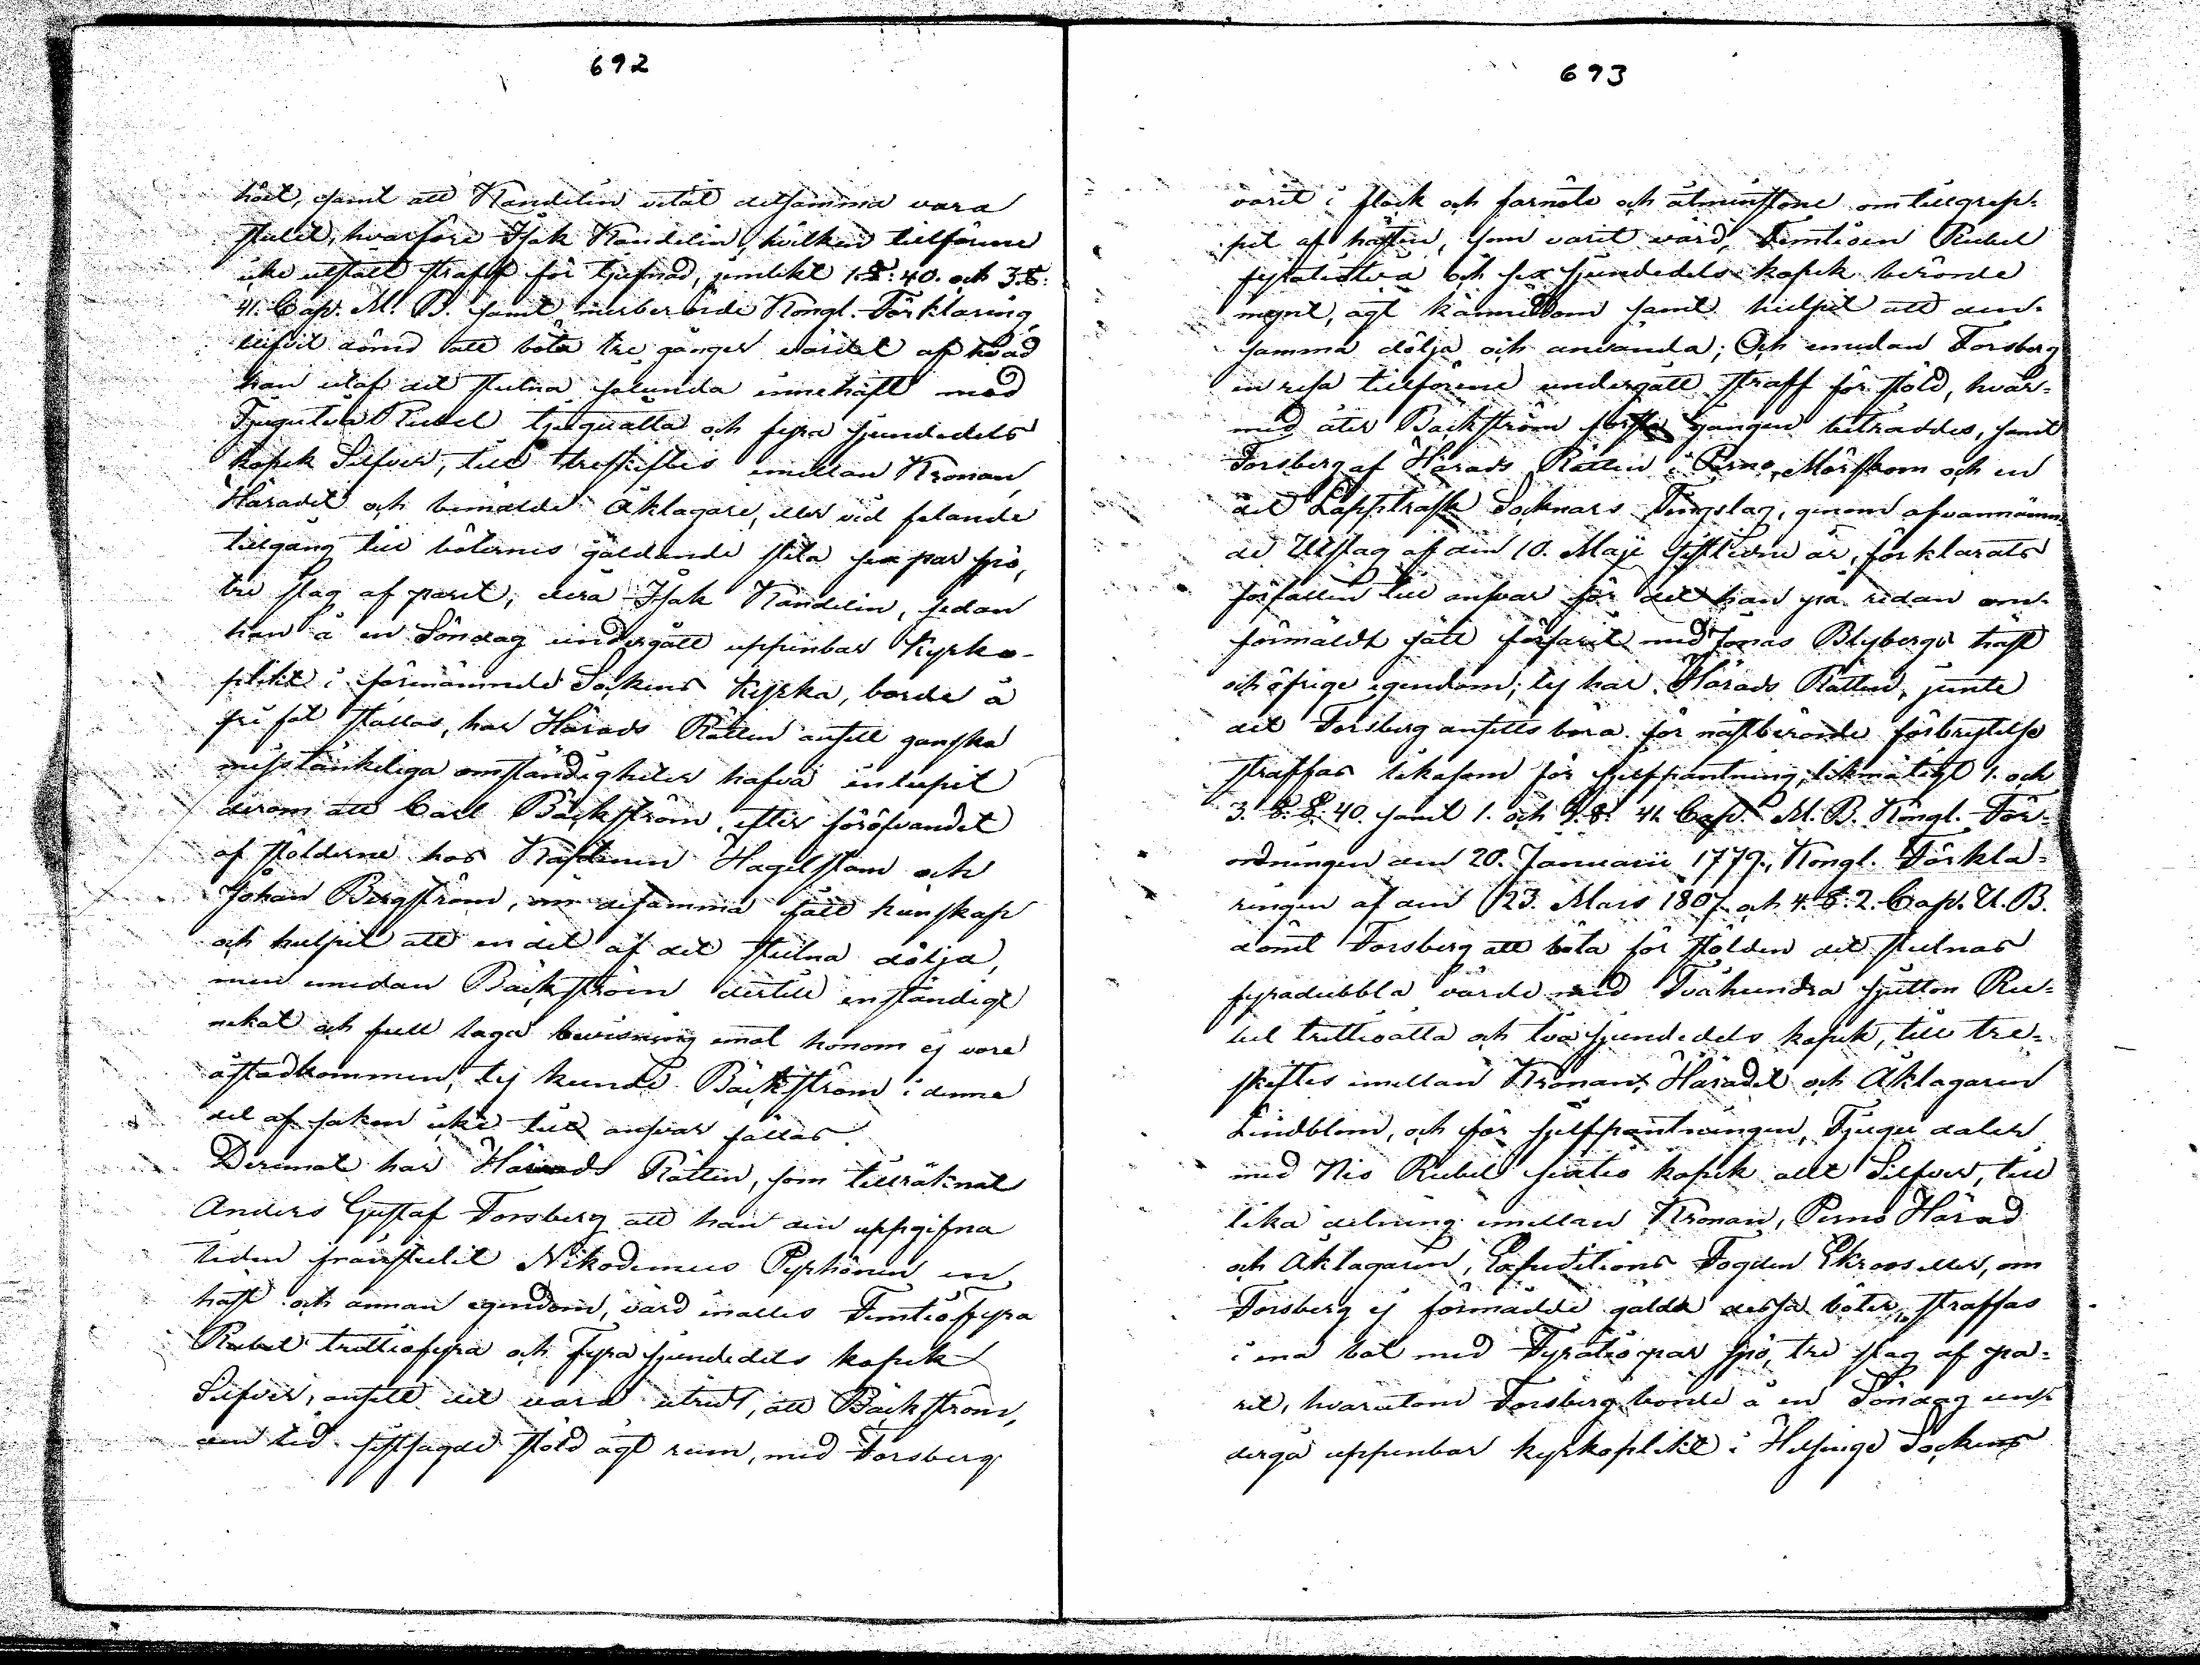 692
hört, samt att Kandelin vetat detsamma vara
stulit, hvarföre Isak Kandelin, hvilken tillförene
icke utstått straff för tjufnad, jemlikt 1. §. 40. och 3. §.
41. Cap. M. B. samt merberörde Kongl. Förklaring
blifvit dömd att böta tre gånger värdet af hvad
han utaf det stulna sålunda innehaft med
Tjugutvå Rubel tjuguåtta och fyra sjundedels
kopek Silfver, till treskiftes emellan Kronan,
Häradet och bemälde Åklagare, eller vid felande
tillgång till böternes gäldande slita sex par spö,
tre slag af paret; dera Isak Kandelin, sedan
han å en Söndag undergått uppenbar Kyrko-
plikt i förenämnde Sockens Kyrka, borde å
fri fot ställas, har Härads Rätten ansett ganska
misstänkeliga omständigheter hafva inlupit
derom att Carl Bäckström, efter föröfvandet
af stölderne hos Kaptenen Hagelstam och
Johan Bergström, om desamma fått kunskap
och hulpit att en del af det stulna dölja,
men emedan Bäckström dertill enständigt
nekat och full laga bevisning emot honom ej vore
åstadkommen, ty kunde Bäckström i denna
del af saken icke till ansvar fällas.
Deremot har Härads Rätten, som tillräknat
Anders Gustaf Forsberg att han den uppgifna
tiden frånstulit Nikodemus Pyyhönen en
häst och annan egendom, värd inalles Femtiofyra
Rubel trettiofyra och fyra sjundedels kopek
Silfver, ansett det vara utredt, att Bäckström,
den tid sistsagde stöld ägt rum, med Forsberg
693
varit i flock och farnöte och åtminstone om tillgrep-
pet af hästen, som varit värd, Femtioen Rubel
fyratiotvå och sex sjundedels kopek berörde
mynt, ägt kännedom samt hulpit att den-
samma dölja och använda; Och emedan Forsberg
en resa tillförene undergått straff för stöld, hvar-
med åter Bäckström första gången beträddes, samt
Forsberg af Härads Rätten i Perno, Mörskom och en
del Lappträsk Socknars Tingslag, genom ofvannämn-
de Utslag af den 10. Maji sistledne år, förklarats
förfallen till ansvar för det han på redan om-
förmäldt sätt förfarit med Jonas Blybergs häst
och öfrige egendom; ty har Härads Rätten, jemte
det Forsberg ansetts böra för nästberörde förbrytelse
straffas likasom för sjelfpantning, likmätigt 1. och
3. §. §. 40. samt 1. och 3. §. 41. Cap. M. B. Kongl. För-
ordningen den 20. Januarii 1779, Kongl. Förkla-
ringen af den 23. Mars 1807 och 4. §. 2. Cap. U. B.
dömt Forsberg att böta för stölden det stulnas
fyradubbla värde med Tvåhundra sjutton Ru-
bel trettioåtta och två sjundedels kopek, till tre-
skiftes emellan Kronan, Häradet och Åklagaren
Lindblom, och för sjelfpantningen, Tjugu daler
med Nio Rubel sextio kopek allt Silfver, till
lika delning emellan Kronan, Perno Härad
och Åklagaren, Expeditions Fogden Ekroos eller, om
Forsberg ej förmådde gälda dessa böter, straffas
i ena bot med Fyratio par spö, tre slag af pa-
ret, hvarutom Forsberg borde å en Söndag un-
dergå uppenbar kyrkoplikt i Helsinge Sockens